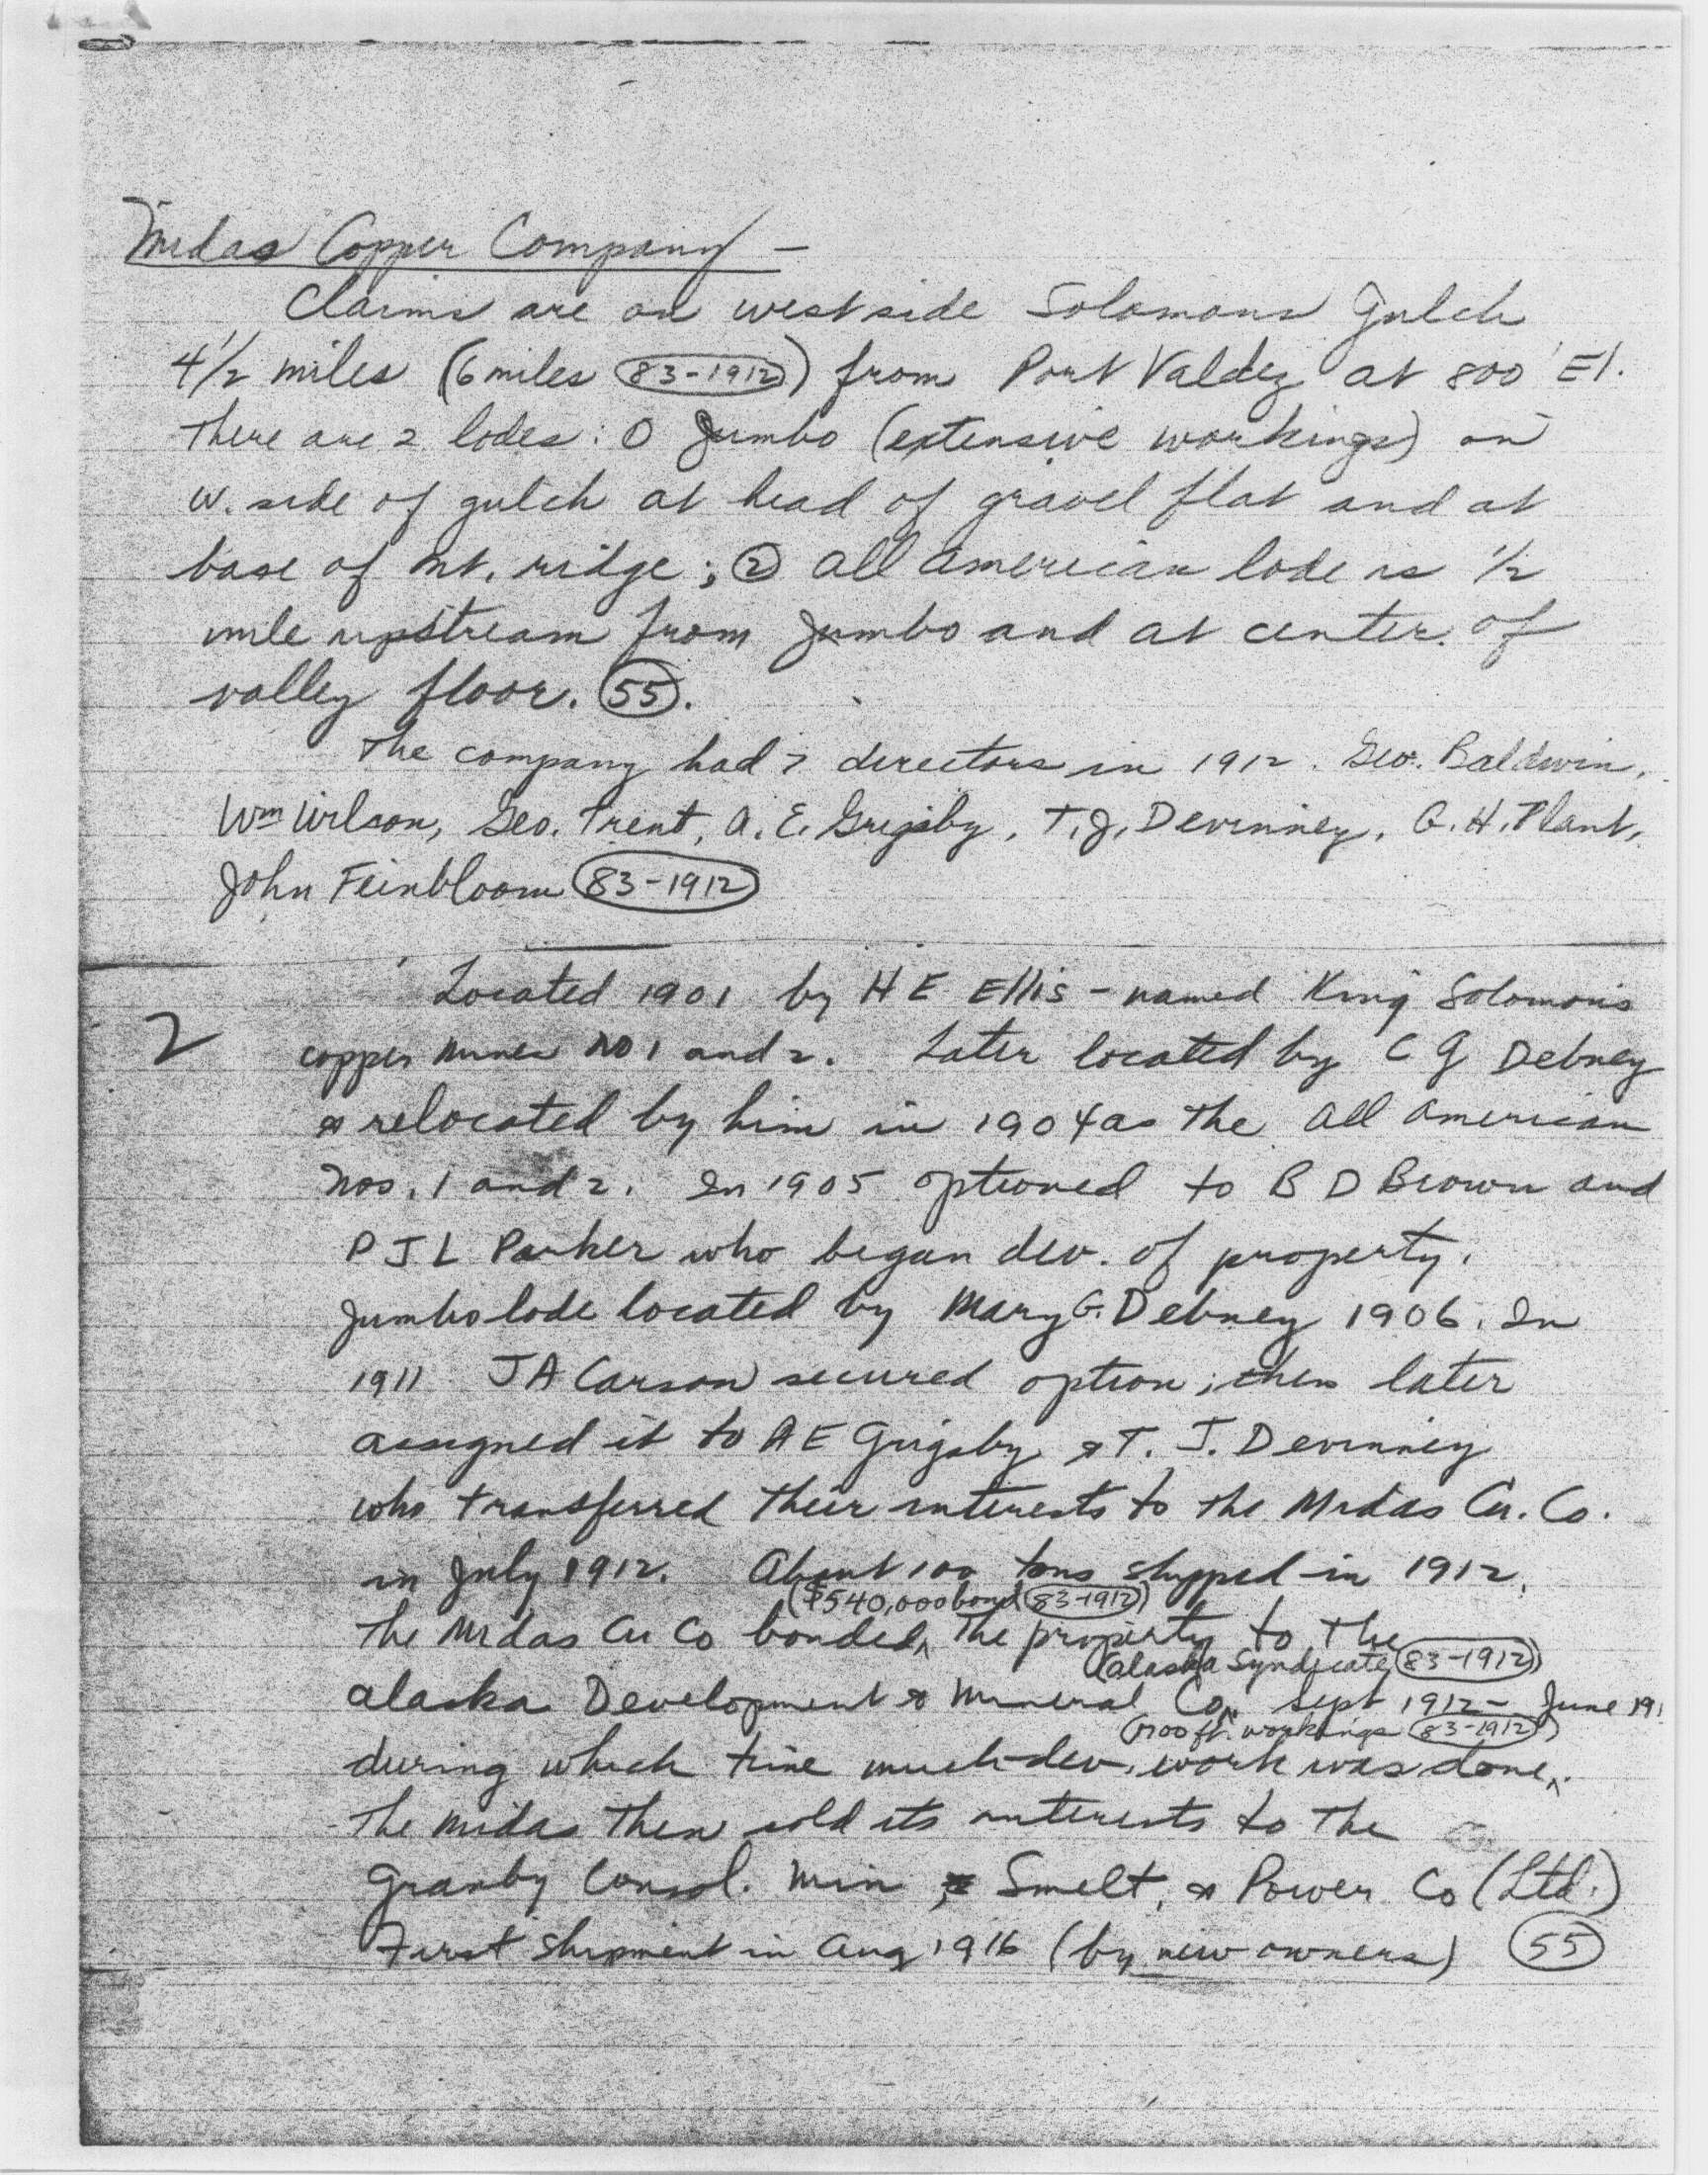 Midas Copper Company –
Claims are on west side Solomons Gulch
4 1/2 miles (6 miles 83-1912) from Port Valdez at 800' El.
There are 2 lodes: ① Jumbo (extensive workings) on
w. side of gulch at head of gravel flat and at
base of mt. ridge; ② all american lode is 1/2
mile upstream from Jumbo and at center of
valley floor. 55.
The company had 7 directors in 1912. Geo. Baldwin,
Wm Wilson, Geo. Trent, A. E. Grigsby, T. J. Devinney, G. H. Plant,
John Feinbloom 83-1912
Located 1901 by H E Ellis – named King Solomon's
2 copper mines No 1 and 2. Later located by C G Debney
& relocated by him in 1904 as the all american
Nos. 1 and 2. In 1905 optioned to B D Brown and
P J L Parker who began dev. of property.
Jumbo lode located by Mary G. Debney 1906. In
1911 J A Carson secured option; then later
assigned it to A E Grigsby & T. J. Devinney
who transferred their interests to the Midas Cu. Co.
in July 1912. About 100 tons shipped in 1912.
($540,000 bond 83-1912)
The Midas Cu Co bonded ^ the property to the
(Alaska Syndicate 83-1912)
Alaska Development & Mineral Co ^ Sept 1912 – June 191
ft. workings 83-1912)
during which time much dev. work was done ^.
The Midas then sold its interests to the
Granby Consol. Min & Smelt. & Power Co (Ltd.)
First shipment in Aug 1916 (by new owners) 55